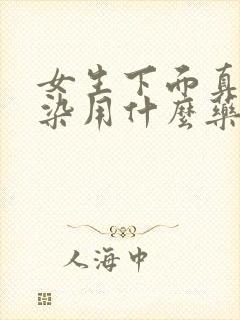 女生下面真
染用什麼藥
人海中